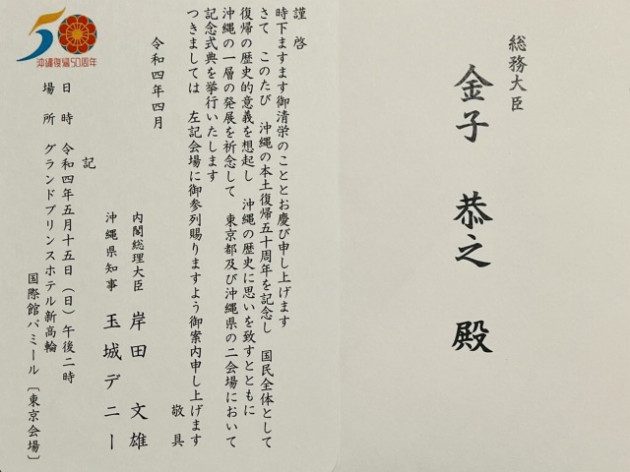 総務大臣
金子 恭之 殿
謹啓
時下ますます御清栄のこととお慶び申し上げます
さて このたび 沖縄の本土復帰五十周年を記念し 国民全体として
復帰の歴史的意義を想起し 沖縄の歴史に思いを致すとともに
沖縄の一層の発展を祈念して 東京都及び沖縄県の二会場において
記念式典を挙行いたします
つきましては 左記会場に御参列賜りますよう御案内申し上げます
敬具
令和四年四月
内閣総理大臣 岸田 文雄
沖縄県知事 玉城デニー
記
日時 令和四年五月十五日(日)午後二時
場所 グランドプリンスホテル新高輪
国際館パミール〔東京会場〕
50
沖縄復帰50周年